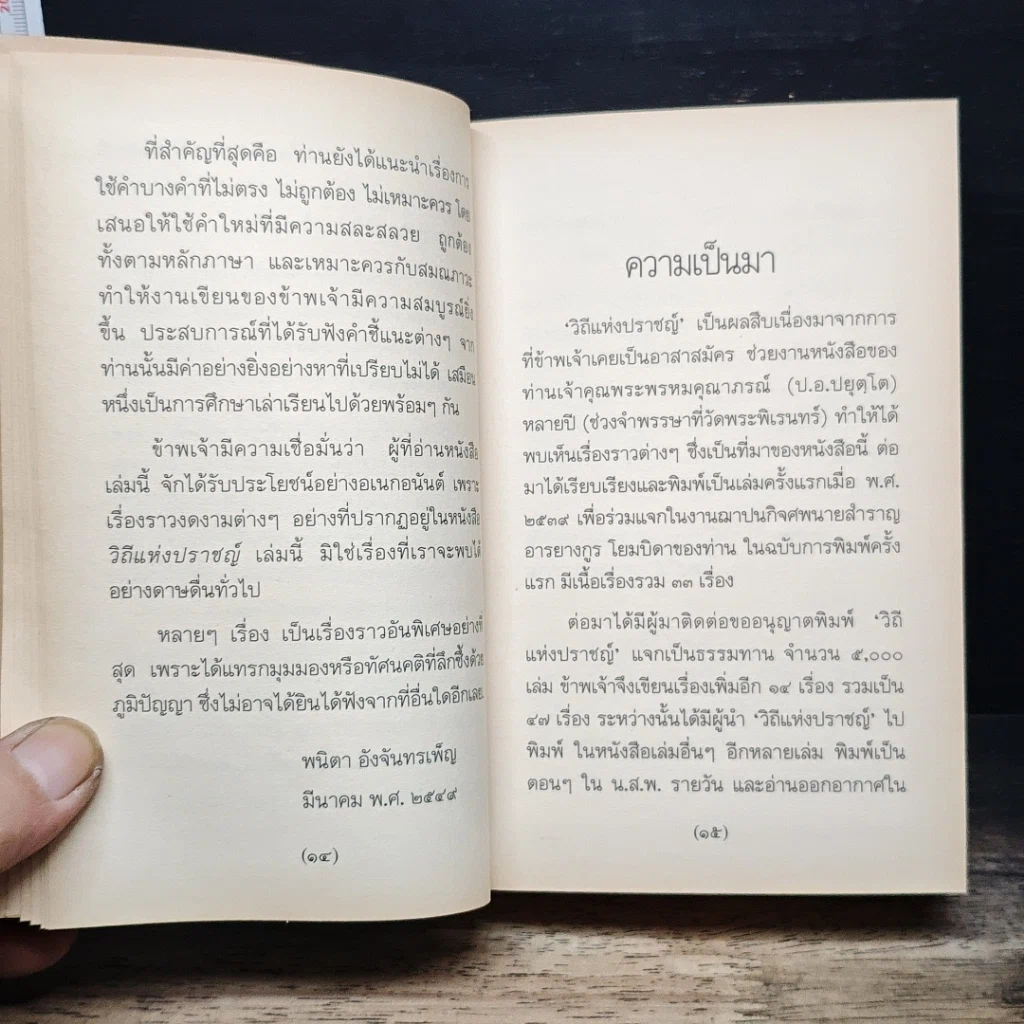 ที่สำคัญที่สุดคือ ท่านยังได้แนะนำเรื่องการ
ใช้คำบางคำที่ไม่ตรง ไม่ถูกต้อง ไม่เหมาะควร โดย
เสนอให้ใช้คำใหม่ที่มีความสละสลวย ถูกต้อง
ทั้งตามหลักภาษา และเหมาะควรกับสมณภาวะ
ทำให้งานเขียนของข้าพเจ้ามีความสมบูรณ์ยิ่ง
ขึ้น ประสบการณ์ที่ได้รับฟังคำชี้แนะต่างๆ จาก
ท่านนั้นมีค่าอย่างยิ่งอย่างหาที่เปรียบไม่ได้ เสมือน
หนึ่งเป็นการศึกษาเล่าเรียนไปด้วยพร้อมๆ กัน
ข้าพเจ้ามีความเชื่อมั่นว่า ผู้ที่อ่านหนังสือ
เล่มนี้ จักได้รับประโยชน์อย่างอเนกอนันต์ เพราะ
เรื่องราวงดงามต่างๆ อย่างที่ปรากฏอยู่ในหนังสือ
วิถีแห่งปราชญ์ เล่มนี้ มิใช่เรื่องที่เราจะพบได้
อย่างดาษดื่นทั่วไป
หลายๆ เรื่อง เป็นเรื่องราวอันพิเศษอย่างที่
สุด เพราะได้แทรกมุมมองหรือทัศนคติที่ลึกซึ้งด้วย
ภูมิปัญญา ซึ่งไม่อาจได้ยินได้ฟังจากที่อื่นใดอีกเลย
พนิตา อังจันทรเพ็ญ
มีนาคม พ.ศ. ๒๕๔๙
(๑๔)
ความเป็นมา
‘วิถีแห่งปราชญ์’ เป็นผลสืบเนื่องมาจากการ
ที่ข้าพเจ้าเคยเป็นอาสาสมัคร ช่วยงานหนังสือของ
ท่านเจ้าคุณพระพรหมคุณาภรณ์ (ป.อ.ปยุตฺโต)
หลายปี (ช่วงจำพรรษาที่วัดพระพิเรนทร์) ทำให้ได้
พบเห็นเรื่องราวต่างๆ ซึ่งเป็นที่มาของหนังสือนี้ ต่อ
มาได้เรียบเรียงและพิมพ์เป็นเล่มครั้งแรกเมื่อ พ.ศ.
๒๕๓๙ เพื่อร่วมแจกในงานฌาปนกิจศพนายสำราญ
อารยางกูร โยมบิดาของท่าน ในฉบับการพิมพ์ครั้ง
แรก มีเนื้อเรื่องรวม ๓๓ เรื่อง
ต่อมาได้มีผู้มาติดต่อขออนุญาตพิมพ์ ‘วิถี
แห่งปราชญ์’ แจกเป็นธรรมทาน จำนวน ๕,๐๐๐
เล่ม ข้าพเจ้าจึงเขียนเรื่องเพิ่มอีก ๑๔ เรื่อง รวมเป็น
๔๗ เรื่อง ระหว่างนั้นได้มีผู้นำ ‘วิถีแห่งปราชญ์’ ไป
พิมพ์ ในหนังสือเล่มอื่นๆ อีกหลายเล่ม พิมพ์เป็น
ตอนๆ ใน น.ส.พ. รายวัน และอ่านออกอากาศใน
(๑๕)